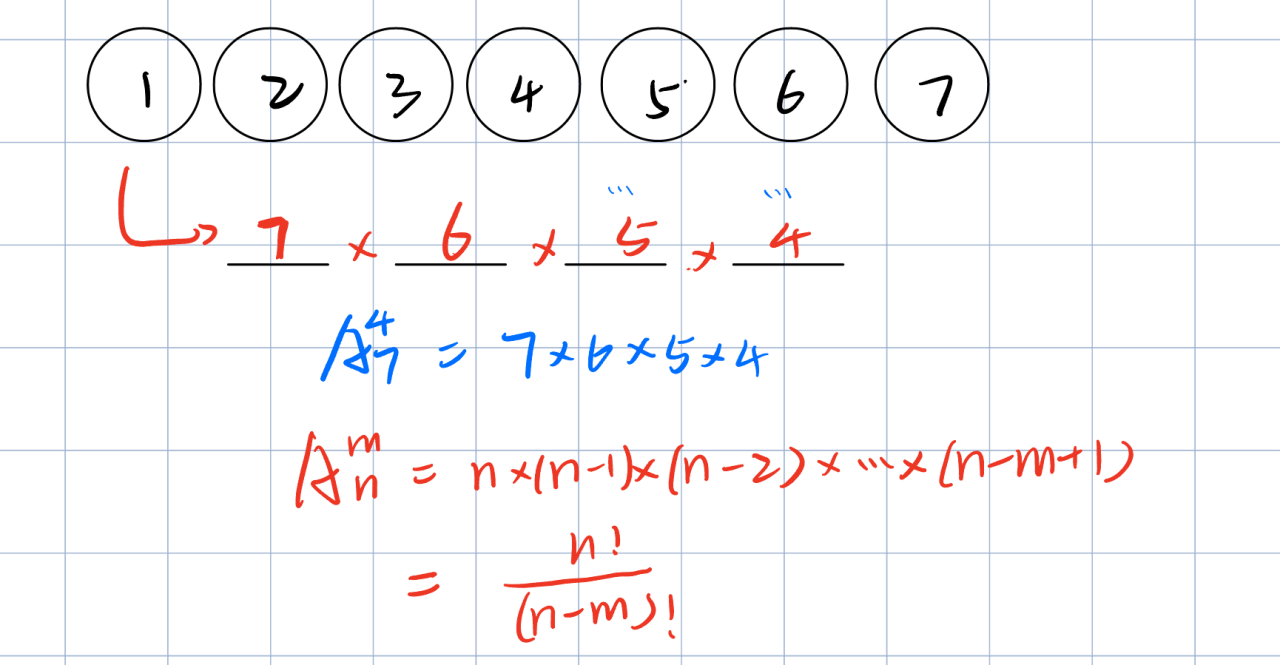 1 2 3 4 5 6 7
... ...
7 × 6 × 5 × 4
A₇⁴ = 7×6×5×4
Aₙᵐ = n×(n-1)×(n-2)×...×(n-m+1)
= n!/(n-m)!